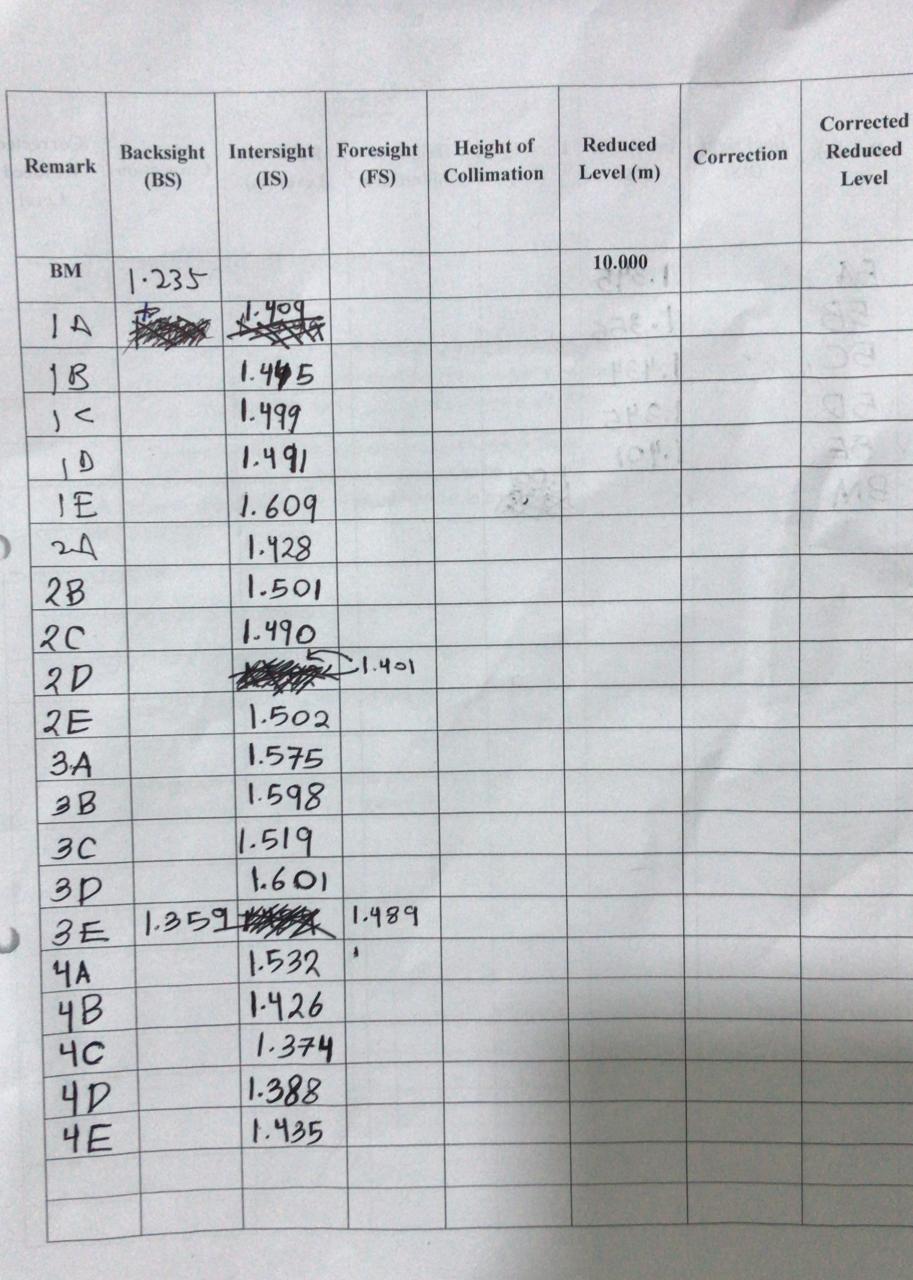 Remark Backsight (BS) Intersight (IS) Foresight (FS) Height of Collimation Reduced Level (m) Correction Corrected Reduced Level
BM 1.235 10.000
1A 1.409
1B 1.445
1C 1.499
1D 1.491
1E 1.609
2A 1.428
2B 1.501
2C 1.490
2D 1.401
2E 1.502
3A 1.575
3B 1.598
3C 1.519
3D 1.601
3E 1.359 1.489
4A 1.532
4B 1.426
4C 1.374
4D 1.388
4E 1.435